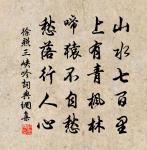 山水七百里
上有青楓林
啼猿不自愁
愁落行人心
徐照三峽吟詞典網集